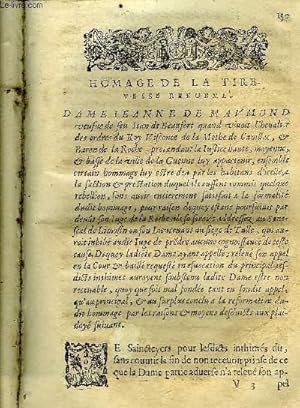 HOMAGE DE LA TIRE-
VESSE
DAME JEANNE DE MAUMOND
veufue de feu Sieur de Beaufort quand viuoit Cheualier
des ordres du Roy Visconte de la Mothe de
Baron de la Roche, pretendant la Iustice haute, moyenne,
& basse de la ville de la Guenne luy appartenir, ensemble
certain hommage luy estre deu par les habitans d'icelle, a
la & prestation duquel ils eussent commis quelque
rebellion, sans auoir entierement satisfait a la formalité
dudit hommage, pour raison dequoy estant poursuiuis par
deuant son Iuge de la Roche
de Limosin ou son Lieutenant au siege de Tulle, qui au-
roit inhibé audit Iuge de prendre aucune cognoissance de ceste
cause. Dequoy ladicte Dame ayant appellé, releue son appel
en la Cour & baillé requeste en euocation du principal, les-
dicts inthimez auroyent soustenu ladicte Dame estre non
receuable, quoy que soit mal fondée tant en sondit appel,
qu'au principal, & au surplus conclu a la reformation du-
dit hommage par les raisons & moyens desduits aux plai-
doyé suiuant.
DE Sainctcyers pour lesdicts inthimés dit,
sans courir la fin de non receuoir prise de ce
que la Dame partie aduerse n'a releué son ap-
V 3 pel